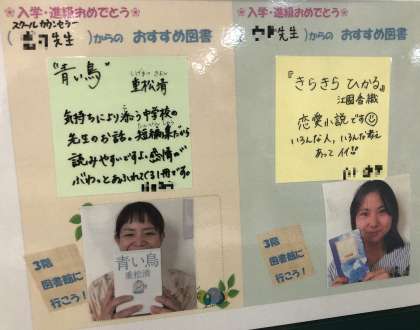 ❀入学・進級おめでとう❀
スクールカウンセラー
先生)からの おすすめ図書
"青い鳥"
しげまつ きよし
重松清
気持ちにより添う中学校の
先生のお話。短編集だから
読みやすいですよ。感情が
ぶわっとあふれてくる1冊です。
青い鳥
重松清
3階
図書館に
行こう!
❀入学・進級おめでとう❀
先生)からの おすすめ図書
『きらきら ひかる』
江國香織
恋愛小説です
いろんな人、いろんな考え
あって イイ!!
3階
図書館に
行こう!